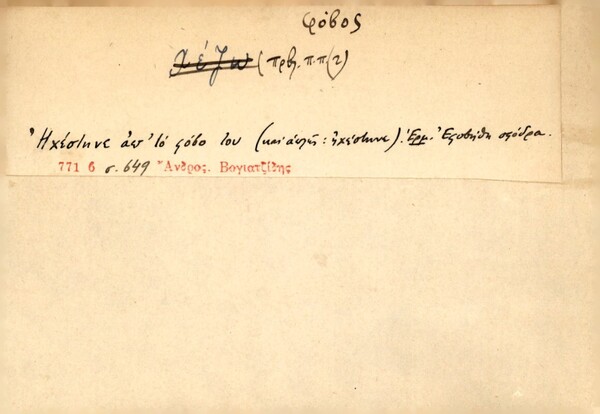 φόβος
χέζω (πρβλ. π.π(2)
Ἠχέστηνε ἀπ' τὸ φόβο του (καὶ ἁπλῶς: ἠχέστηνε). Ἑρμ. Ἐφοβήθη σφόδρα.
771 6 σ. 649 Ἄνδρος. Βογιατζίδης